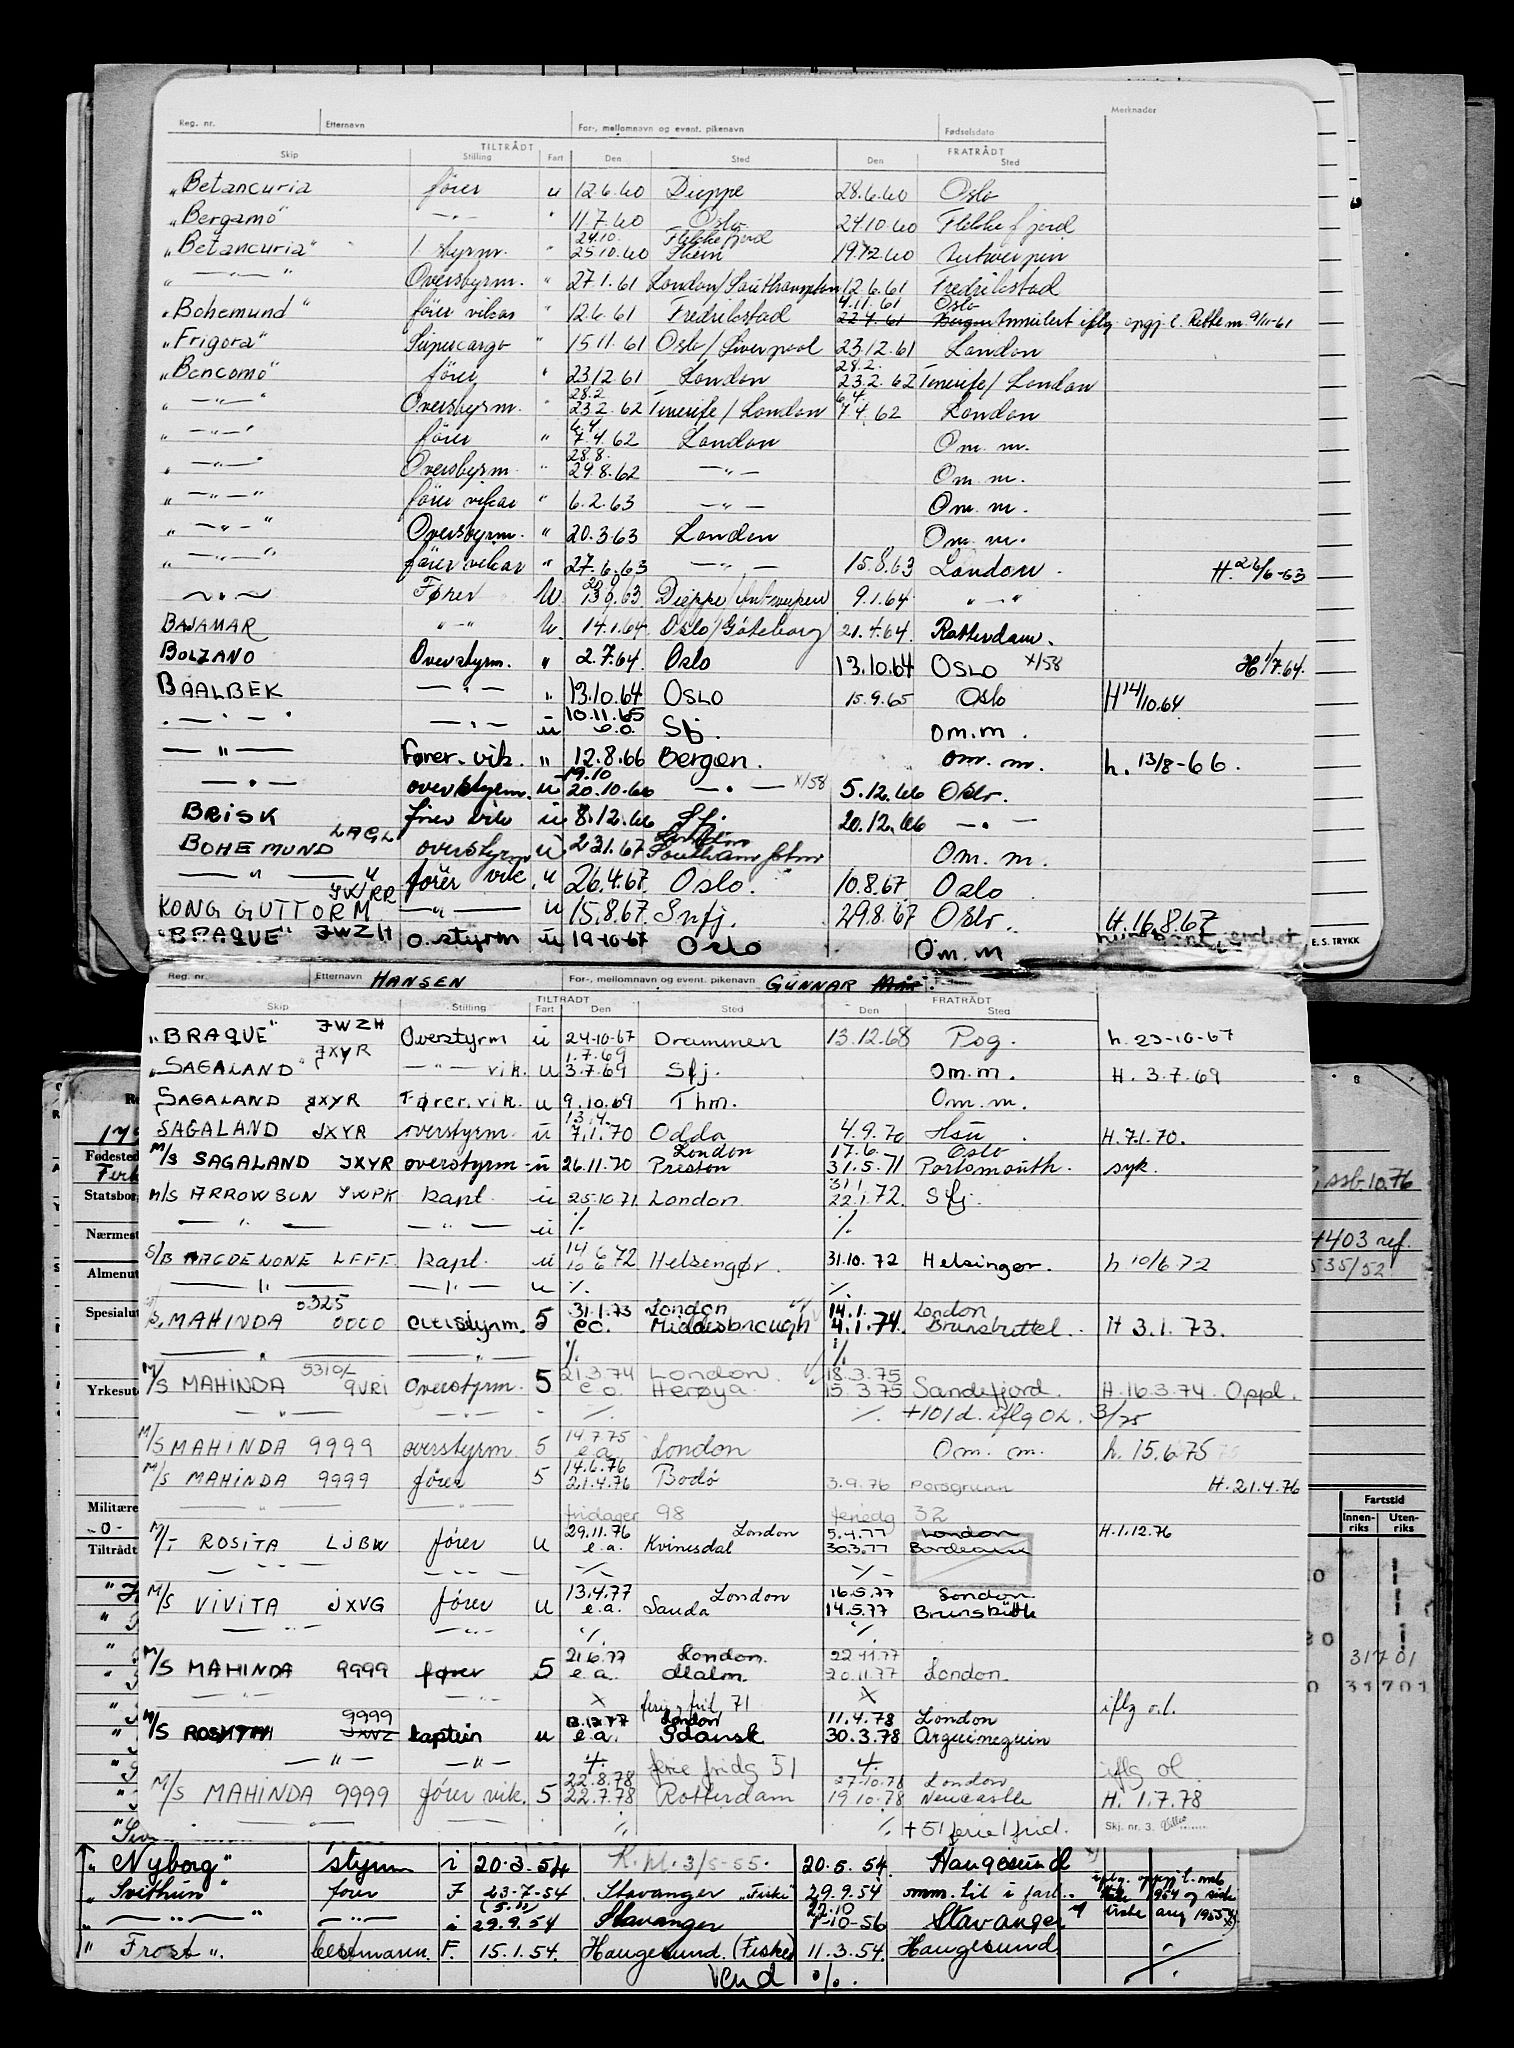 Reg. nr. Etternavn For-, mellomnavn og event. pikenavn Fødselsdato Merknader
TILTRÅDT FRATRÅDT
Skip Stilling Fart Den Sted Den Sted
"Betancuria fører u 12.6.60 Dieppe 28.6.60 Oslo
"Bergamo" —"— " 11.7.60 Oslo 24.10.60 Flekkefjord
24.10. Flekkefjord
"Betancuria" 1 styrm. " 25.10.60 Skien 19.12.60 Antwerpen
" —"— " Overstyrm. " 27.1.61 London/Southampton 12.6.61 Fredrikstad
4.11.61 Oslo
"Bohemund" fører vikar " 12.6.61 Fredrikstad 22.4.61 Bergen Annulert iflg. oppgj. l. Rette m. 9/11-61
"Frigora" Supercargo " 15.11.61 Oslo/Liverpool 23.12.61 London
28.2.
"Bencomo" fører " 23.12.61 London 23.2.62 Tenerife/London
28.2 6.4
" —"— " Overstyrm. " 23.2.62 Tenerife/London 7.4.62 London
6.4
" —"— " fører " 7.4.62 London Om. m.
28.8.
" —"— " Overstyrm. " 29.8.62 —"— Om. m.
" —"— " fører vikar " 6.2.63 —"— Om. m.
" —"— " Overstyrm. " 20.3.63 London Om. m.
" —"— " fører vikar " 27.6.63 —"— 15.8.63 London. H. 26/6-63
—"— Fører U. 13.9.63 Dieppe/Antwerpen 9.1.64 " — "
BAJAMAR " — " U. 14.1.64 Oslo/Göteborg 21.4.64. Rotterdam.
BOLZANO Overstyrm. " 2.7.64. Oslo 13.10.64 OSLO x/58 H 1/7.64.
BAALBEK —"— " 13.10.64 OSLO 15.9.65 Oslo H 14/10.64
10.11.65
" — " — " —"— u e.o. Sfj. om.m.
— " — Fører. vik. " 12.8.66 Bergen. om. m. h. 13/8-66.
19.10
— " — overstyrm. u 20.10.66 —"— x/58 5.12.66 Oslo.
BRISK fører vik u 8.12.66 Sfj. 20.12.66 —"—
BOHEMUND LAGL overstyrm u 2.31.67 London Southampton Om. m.
— " — " fører vik. u 26.4.67. Oslo. 10.8.67. Oslo
KONG GUTTORM JXRR —"— u 15.8.67. Snfj. 29.8.67 Oslo. H. 16.8.67
"BRAQUE" JWZH o.styrm u 19-10-67 Oslo Om. m
E. S. TRYKK
Reg. nr. Etternavn HANSEN For-, mellomnavn og event. pikenavn GUNNAR
TILTRÅDT FRATRÅDT
Skip Stilling Fart Den Sted Den Sted
"BRAQUE" JWZH Overstyrm u 24-10-67 Drammen 13.12.68 Pog. h. 23-10-67
1.7.69
"SAGALAND" JXYR —"— vik. u 3.7.69 Sfj. om.m. H. 3.7.69
SAGALAND JXYR Fører.vik. u 9.10.69 Thm. Om. m.
13.4.
SAGALAND JXYR overstyrm. u 7.1.70 Odda 4.9.70 Hsu. H. 7.1.70.
London 17.6. Oslo
M/S SAGALAND JXYR overstyrm - u 26.11.70 Preston 31.5.71 Portsmouth. syk.
31.1
M/S ARROW SUN JWPK kapt. u 25.10.71 London 22.1.72. Sfj.
— " — — " — u ٪ ٪
14
S/B MAGDELONE LFFF. kapt. u 10.6.72 Helsengør. 31.10.72 Helsingør. h 10/6.72
— " — — " — u ٪. ٪.
0325 31.1.73 London 14.1. London
M/S. MAHINDA 0000 overstyrm. 5 eo. Middlesbrough 4.1.74. Brunsbuttel.. H 3.1.73.
— " — — " — ٪. ٪.
5310/2 21.3.74 London. 18.3.75
M/S MAHINDA 9VRI Overstyrm. 5 e.o. Herøya. 15.3.75 Sandefjord. H. 16.3.74. Oppl.
— " — — " — - ٪. ٪. +101d. iflg OL. 3/75
14.7.75
M/S MAHINDA 9999 overstyrm. 5 e.a. London Om. m. h. 15.6.75
14.6.76
M/S MAHINDA 9999 fører 5 21.4.76 Bodø 3.9.76 Porsgrunn H. 21.4.76
— " — — " — fridager 98 feriedg 32
29.11.76 London 5.4.77 London
M/T ROSITA LJBW fører u e.a. Kvinesdal 30.3.77 Bordeaux H. 1.12.76
— " — — " — -/- ٪ -
13.4.77 London 16.5.77 London
M/S VIVITA JXVG fører u e.a. Sauda 14.5.77 Brunsbütte
— " — — " — ٪. ٪.
21.6.77 London. 22.11.77
M/S MAHINDA 9999 fører 5 e.a. Malm. 20.11.77 London.
— " — — " — X ferie frid 71 X iflg o.l.
9999 London 11.4.78 London
M/S JXVZ kaptein u e.a. Gdansk 30.3.78 Arguineguin
— " — — " — ٪. ferie fridg 51 ٪. iflg ol.
22.8.78 27.10.78 London
M/S MAHINDA 9999 fører vik. 5 22.7.78 Rotterdam 19.10.78 Newcastle H. 1.7.78
— " — — " — ٪ ٪ +51 ferie/frid. Skj. nr. 3.
Fødested
Statsborg
Nærmest
Almenut
Spesialut
Yrkesut
Militære
-0-
Tiltrådt
, ssb.10.76
4403 ref.
535/52
Fartstid
Innen-riks Uten-riks
31701
31701
" Nyborg" styrm i 20.3.54 K.M. 3/5-55. 20.5.54 Haugesund
" Svithun" fører F 23-7-54 Stavanger "Fiske" 29.9.54 omm. til i fart..
(5.11) 22.10
" —"— " —"— i 29.9.54 Stavanger 1-10-56 Stavanger
" Frost ". bestmann. F. 15.1.54. Haugesund. (Fiske) 11.3.54. Haugesund
Vend ٪.